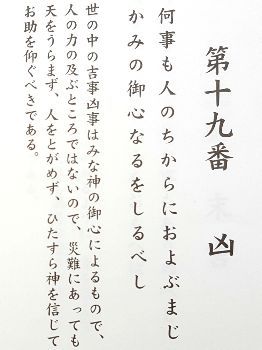 第十九番 凶
何事も人のちからにおよぶまじ
かみの御心なるをしるべし
世の中の吉事凶事はみな神の御心によるもので、
人の力の及ぶところではないので、災難にあっても
天をうらまず、人をとがめず、ひたすら神を信じて
お助を仰ぐべきである。